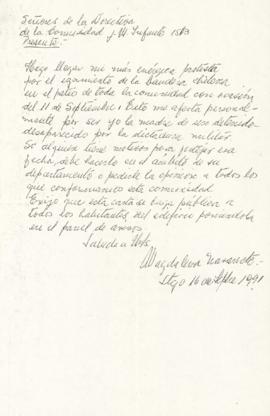 Señores de la Directiva
de la Comunidad J. M. Infante 1583
Presente.-
Hago llegar mi más enérgica protesta
por el izamiento de la bandera chilena
en el patio de toda la comunidad con ocasión
del 11 de Septiembre. Esto me afecta personal-
mente por ser yo la madre de un detenido-
desaparecido por la dictadura militar.
Si alguien tiene motivos para festejar esa
fecha, debe hacerlo en el ámbito de su
departamento o pedirle la opinión a todos los
que conformamos esta comunidad.
Exijo que esta carta se haga pública a
todos los habitantes del edificio poniéndola
en el panel de avisos.
Saluda a Uds.
Magdalena Navarrete.-
Stgo 16 1991